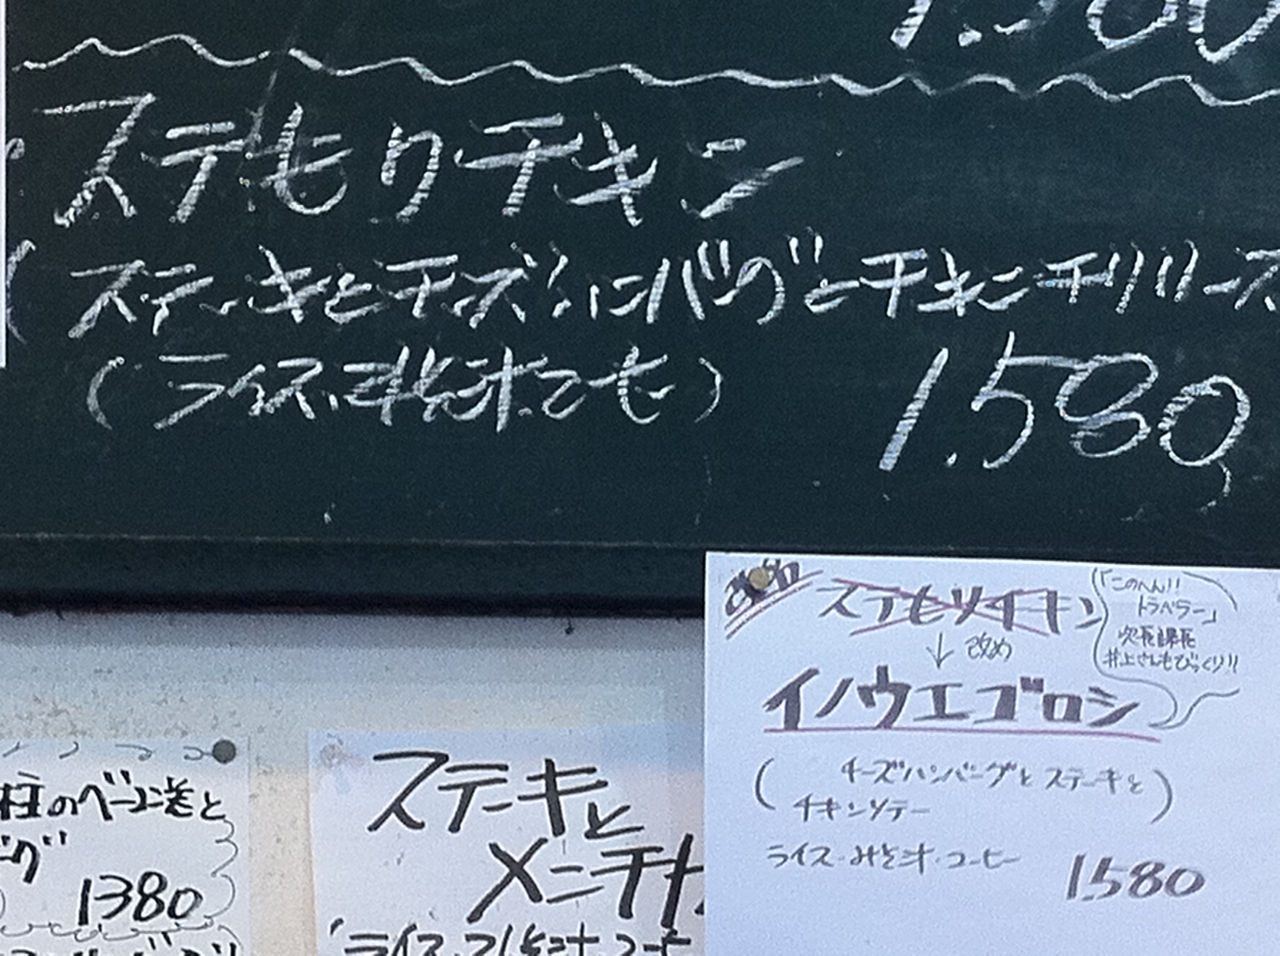 1.580
ステもりチキン
(ステーキとチーズハンバーグとチキンチリソース
(ライス、みそ汁、コーヒー)
1.580
改め
ステもりチキン
↓改め
イノウエゴロシ
「このへん!!
トラベラー」
次長課長
井上さんもびっくり!!
(チーズハンバーグとステーキと
チキンソテー)
ライス・みそ汁・コーヒー
1.580
柱のベーコン巻と
1380
ステーキと
メンチカ
ライス・みそ汁・コーヒー